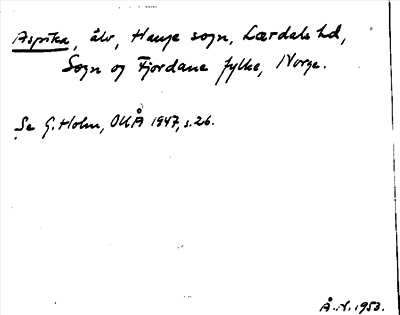 Aspvika, älv, Hauge sogn, Lærdals hd,
Sogn og Fjordane fylke, Norge.
Se G. Holm, OUÅ 1947, s. 26.
Å. N. 1953.